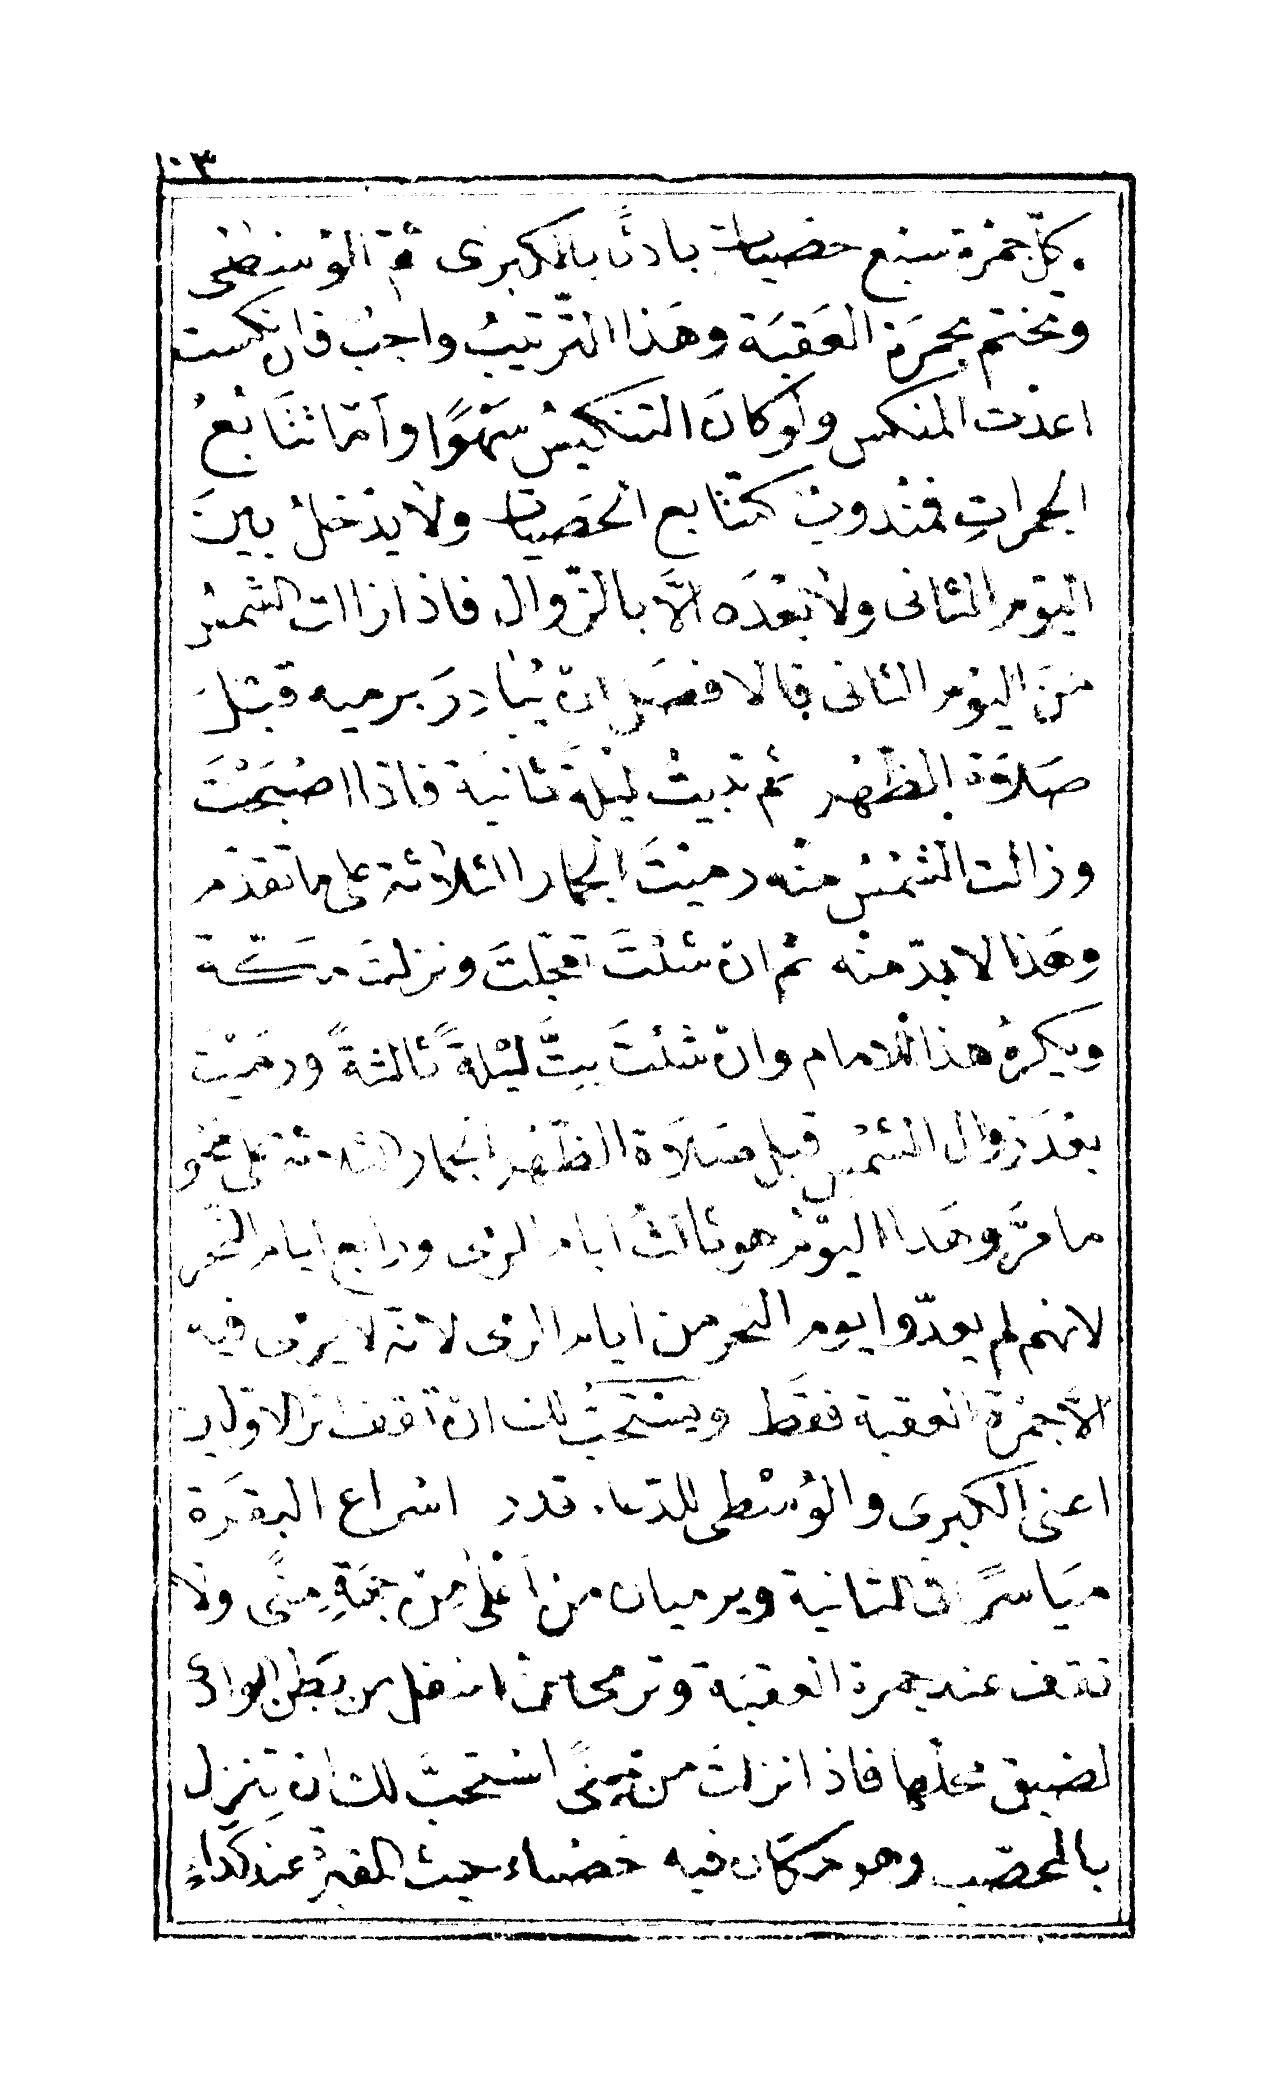 ١٠٣
كلّ جمْرة سبْع حصْيات بادئًا بالكبرى ثمّ الوسْطى
وتختم بجمرَة العَقبَة وهَذا التّرتيبُ واجبٌ فان نكست
اعدْت المنكس ولو كانَ التنكيسُ سَهْوًا وأمّا تتَابُعُ
الجمراتِ فمنْدوبٌ كتتابع الحصَيات ولا يدْخلُ بينَ
اليَوْم الثانى ولا بعْدَه الاّ بالزّوال فاذا زالت الشمسُ
منَ اليوْم الثانى فالافضَل ان يُبَادِرَ برميه قبْلَ
صَلاَة الظّهْر ثم تبيتُ ليْلةً ثانيَة فاذا اصْبَحْتَ
وزالت الشمْسُ منْه رميْتَ الجمار الثلاثة على ما تقدّم
وهَذا لا بدّ منْه ثم ان شئْتَ تعجّلتَ ونزلتَ مكّة
ويكرهُ هذا للامام وانْ شئتَ بِتَّ ليْلةً ثالثةً ورمَيْتَ
بعْدَ زوال الشمْس قبل صَلاَة الظّهْر الجمار الثلاثة على نحْو
ما مَرَّ وهَذا اليوْمُ هو ثالثُ ايام الرمى ورابع ايام النّحْر
لانهم لم يعدّوا يوم النحر من ايام الرمى لانهُ لا يرْمى فيه
الاّ جمْرة العقبة فقَط ويسْتحَبُّ لك انْ تقف اثر الاوّليين
اعنى الكبرى والوُسْطى للدّعاء قدر اسراع البقَرَة
ميَاسرًا فى الثانية ويرميان من أعْلى مِنْ جهَةِ مِنًى ولا
تقف عند جمرة العقبَة وترمى من اسْفل من بَطن الوادى
لضيق محلّها فاذا نزلتَ من مِنًى اسْتحبَّ لك ان تنزل
بالمحصّب وهو مكان فيه حصْباء حيث المقبرة عندَ كَدَاءٍ